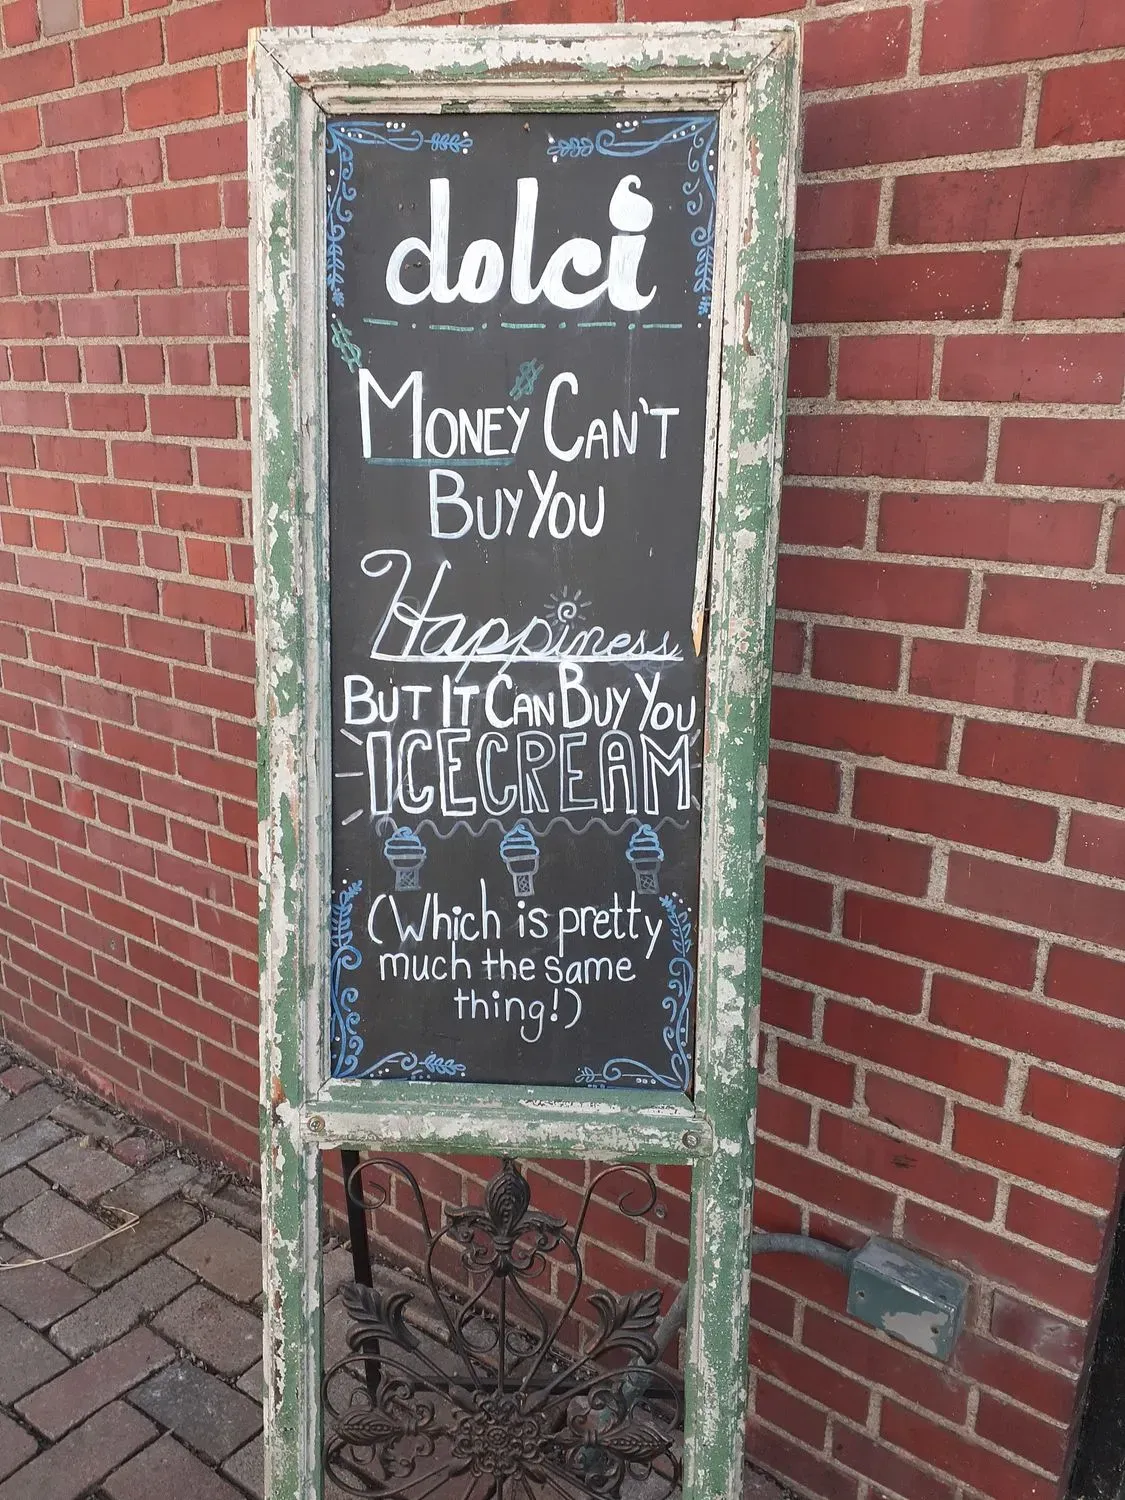 dolci
$
$
MONEY CAN'T
BUY YOU
Happiness
BUT IT CAN BUY YOU
ICECREAM
(Which is pretty
much the same
thing!)